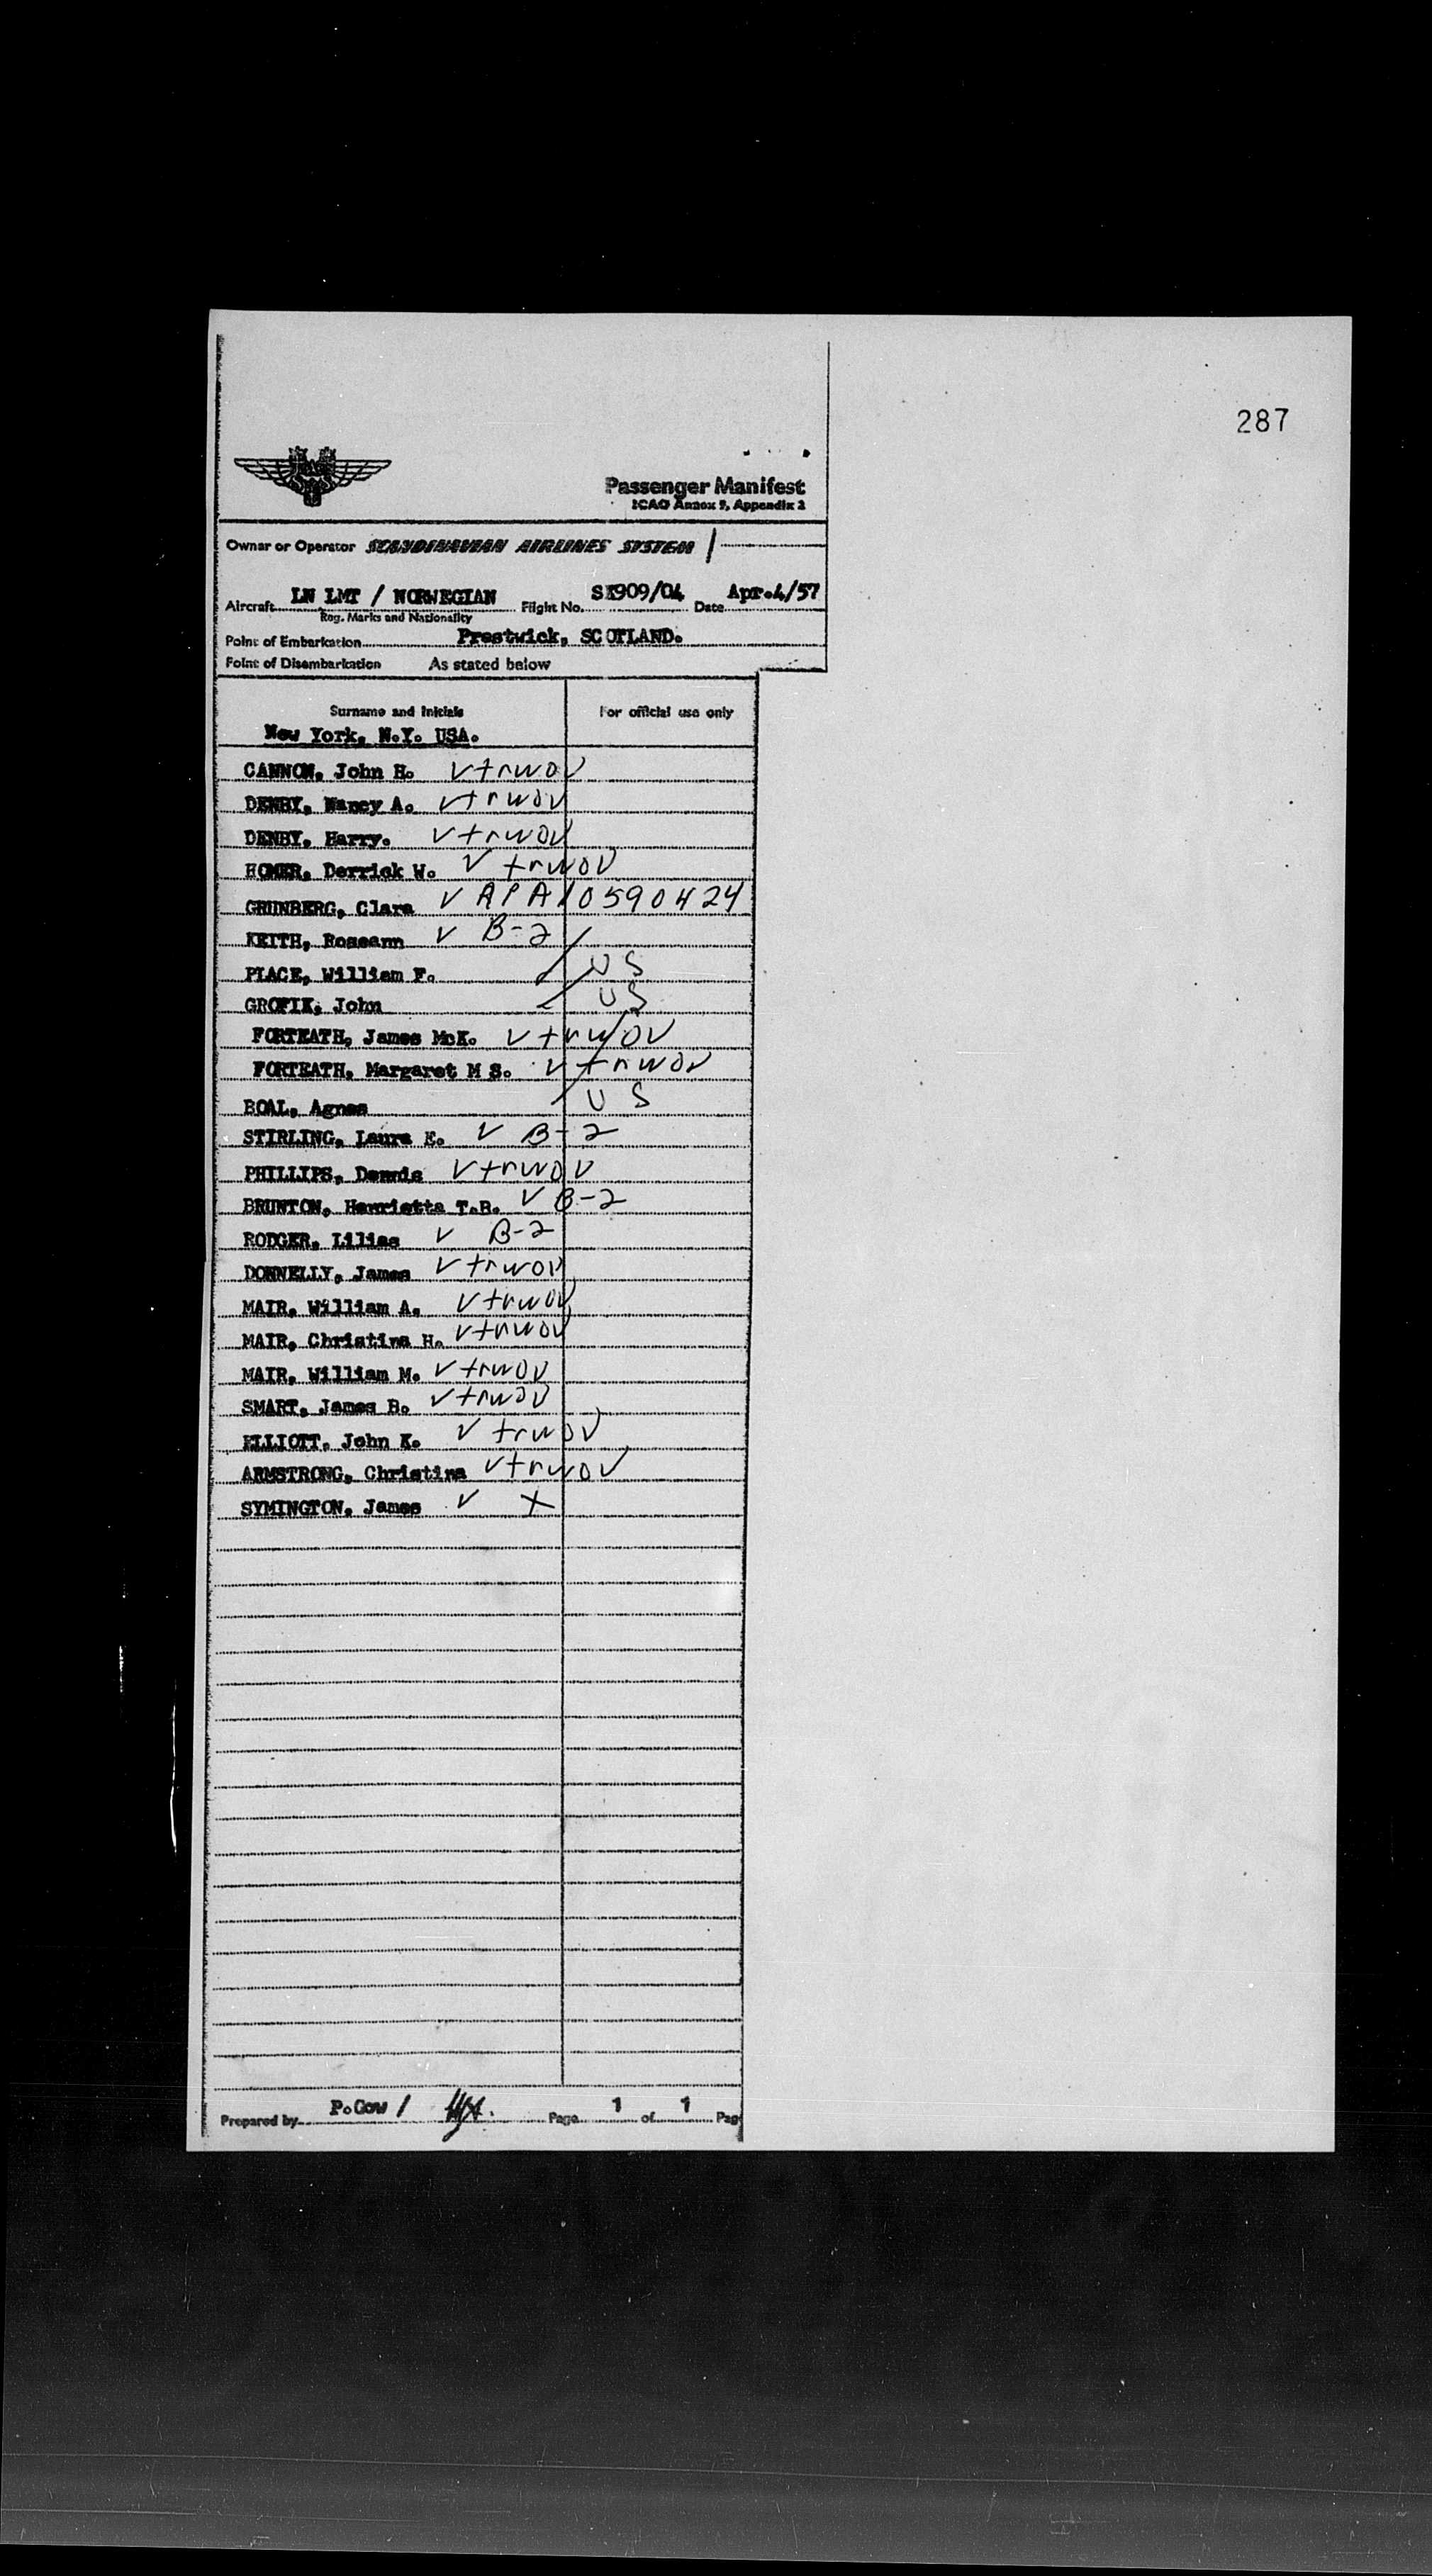 287
Passenger Manifest
ICAO Annex 9, Appendix 2
Owner or Operator SCANDINAVIAN AIRLINES SYSTEM /
Aircraft LN LMT / NORWEGIAN Flight No. SK909/04 Date Apr.4/57
Reg. Marks and Nationality
Point of Embarkation Prestwick, SCOTLAND.
Point of Disembarkation As stated below
Surname and Initials For official use only
New York, N.Y. USA.
CANNON, John H. ✓ trwov
DENBY, Nancy A. ✓ trwov
DENBY, Harry. ✓ trwov
HOMER, Derrick W. ✓ trwov
GRUNBERG, Clara ✓ APA 10590424
KEITH, Roseann ✓ B-2
PLACE, William F. ✓ US
GROFIK, John ✓ US
FORTEATH, James McK. ✓ trwov
FORTEATH, Margaret M S. ✓ trwov
BOAL, Agnes ✓ US
STIRLING, Laura E. ✓ B-2
PHILLIPS, Dennis ✓ trwov
BRUNTON, Henrietta T.R. ✓ B-2
RODGER, Lilias ✓ B-2
DONNELLY, James ✓ trwov
MAIR, William A. ✓ trwov
MAIR, Christina H. ✓ trwov
MAIR, William M. ✓ trwov
SMART, James B. ✓ trwov
ELLIOTT, John K. ✓ trwov
ARMSTRONG, Christina ✓ trwov
SYMINGTON, James ✓ X
Prepared by P.Gow / Page 1 of 1 Pag